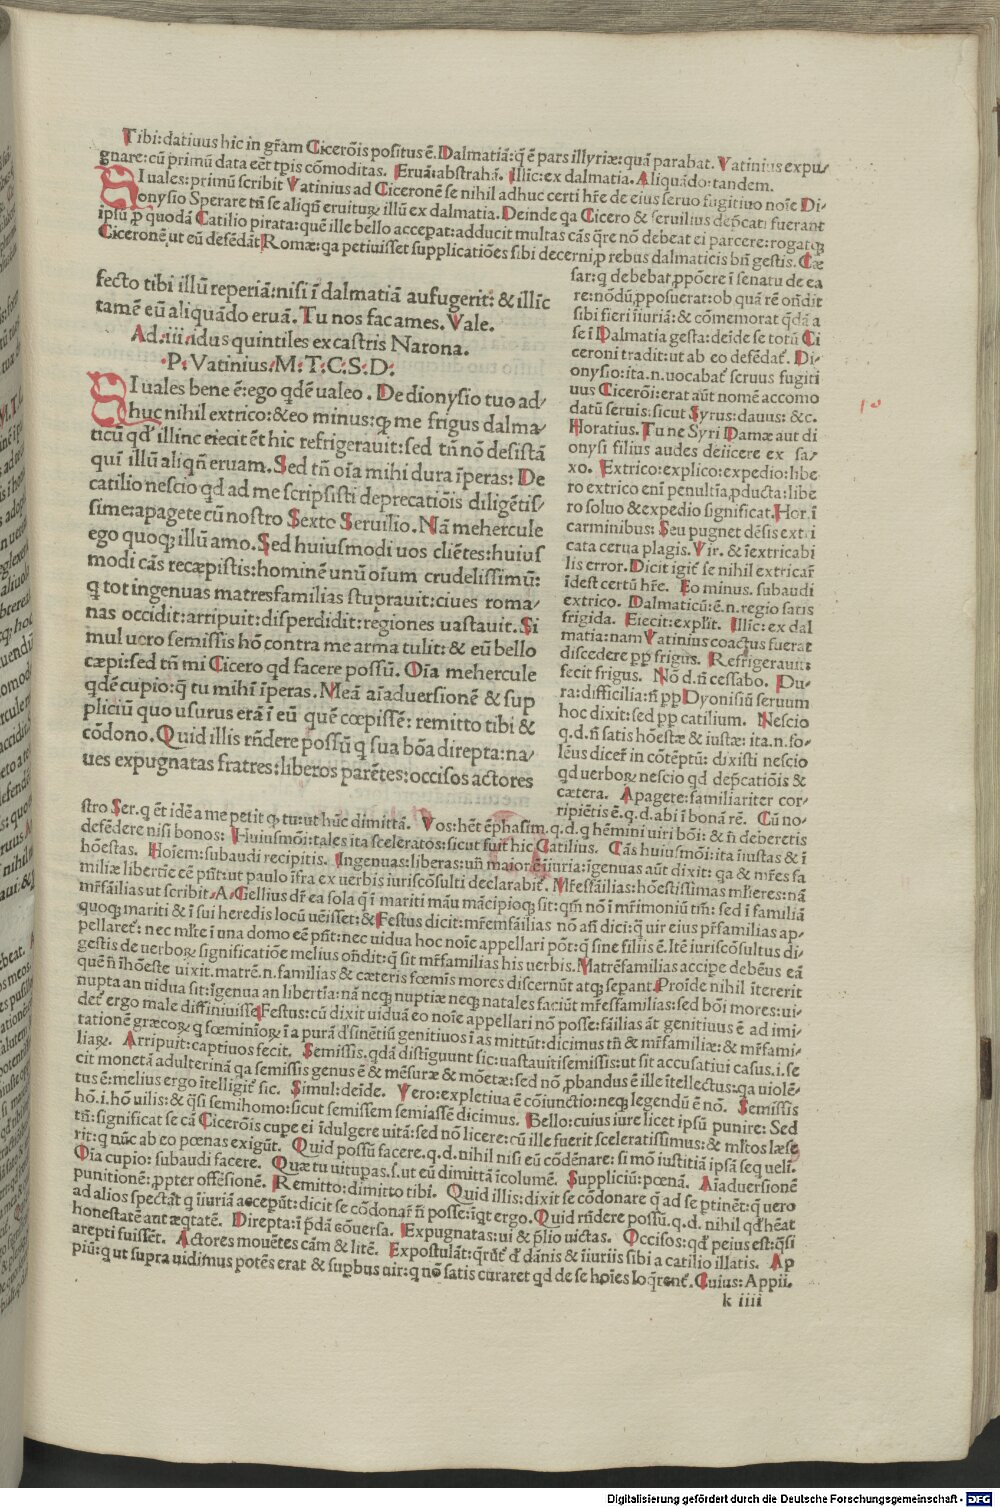 Tibi: datiuus hic in gr̄am Cicerōis positus ē. Dalmatiā: q̄ ē pars illyriæ: quā parabat. Vatinius expu/
gnare: cū primū data eēt tp̄is cōmoditas. Eruā: abstrahā. Illic: ex dalmatia. Aliquādo: tandem.
SI uales: primū scribit Vatinius ad Cicerōnē se nihil adhuc certi hr̄e de eius seruo fugitiuo noīe Di/
onysio Sperare tn̄ se aliqn̄ eruituꝝ illū ex dalmatia. Deinde qa Cicero & seruilius dep̄cati fuerant
ipsū ꝓ quodā Catilio pirata: quē ille bello acceꝑat: adducit multas cās q̄re nō debeat ei parcere: rogatqꝫ
Cicerōnē ut eū defēdāt Romæ: qa petiuisset supplicatiōes sibi decerni ꝓ rebus dalmaticis bn̄ gestis. Cæ
fecto tibi illū reperiā: nisi ī dalmatiā aufugerit: & illīc
tamē eū aliquādo eruā. Tu nos fac ames. Vale.
Ad .iii. idus quintiles ex castris Narona.
.P. Vatinius .M. T. C. S. D.
SI uales bene ē: ego qdē ualeo. De dionysio tuo ad/
huc nihil extrico: & eo minus: qꝫ me frigus dalma/
ticū qd' illinc eiecit ēt hic refrigerauit: sed tn̄ nō desistā
quī illū aliqn̄ eruam. Sed tn̄ oīa mihi dura īperas: De
catilio nescio qd ad me scripsisti deprecatiōis diligētis/
sime: apagete cū nostro Sexto Seruilio. Nā mehercule
ego quoqꝫ illū amo. Sed huiusmodi uos cliētes: huius
modi cās recæpistis: hominē unū oīum crudelissimū:
q tot ingenuas matresfamilias stuprauit: ciues roma/
nas occidit: arripuit: disperdidit: regiones uastauit. Si
mul uero semissis hō contra me arma tulit: & eū bello
cæpi: sed tn̄ mi Cicero qd facere possū. Oīa mehercule
qdē cupio: q̄ tu mihi īperas. Meā aīaduersionē & sup
pliciū quo usurus erā ī eū quē cœpissē: remitto tibi &
cōdono. Quid illis rn̄dere possū q sua bōa direpta: na/
ues expugnatas fratres: liberos parētes: occisos actores
sar: q debebat ꝓpōere ī senatu de ea
re: nōdū ꝓposuerat: ob quā rē on̄dit
sibi fieri iniuriā: & cōmemorat q̄dā a
se ī Dalmatia gesta: deīde se totū Ci
ceroni tradit: ut ab eo defēdat'. Di/
onysio: ita .n. uocabat' seruus fugiti
uus Cicerōi: erat aūt nomē accomo
datū seruis: sicut Syrus: dauus: &c.
Horatius. Tu ne Syri Damæ aut di
onysi filius audes deiicere ex sa/
xo. Extrico: explico: expedio: libe
ro extrico enī penultīa ꝓducta: libe
ro soluo & expedio significat. Hor. ī
carminibus: Seu pugnet dēsis ext.i
cata cerua plagis. Vir. & īextricabi
lis error. Dicit igit' se nihil extricar̄
īdest certū hr̄e. Eo minus. subaudi
extrico. Dalmaticū: ē .n. regio satis
frigida. Eiecit: expl̄it. Illīc: ex dal
matia: nam Vatinius coactus fuerat
discedere pp̄ frigus. Refrigerauit:
fecit frigus. Nō d. n̄ cessabo. Du/
ra: difficilia: n̄ pp̄ Dyonisiū seruum
hoc dixit: sed pp̄ catilium. Nescio
q. d. n̄ satis hōestæ & iustæ: ita .n. so/
lēus dicer̄ in cōtēptū: dixisti nescio
qd uerboꝝ nescio qd dep̄catiōis &
cætera. Apagete: familiariter cor/
ripiētis ē. q. d. abi ī bonā rē. Cū no/
stro Ser. q ēt idē a me petit qꝫ tu: ut huc dimittā. Vos: hēt ēphasim. q. d. q hēmini uiri bōi: & n̄ deberetis
defēdere nisi bonos: Huiusmōi: tales ita sceleratos: sicut fuit hic Catilius. Cās huiusmōi: ita iiustas & ī
hōestas. Hoīem: subaudi recipitis. Ingenuas: liberas: un̄ maior ē īiuria: īgenuas aūt dixit: qa & mr̄es fa
miliæ libertīe cē pn̄t: ut paulo īfra ex uerbis iuriscōsulti declarabit'. Mr̄esfāilias: hōestissimas ml̄ieres: nā
mr̄fāilias ut scribit .A. Gellius dr̄ ea sola q̄ ī mariti māu mācipioqꝫ sit: qm̄ nō ī mr̄imoniū tm̄: sed ī familiā
quoqꝫ mariti & ī sui heredis locū uēisset: & Festus dicit: mr̄emfāilias nō an̄ dici: q̄ uir eius pr̄familias ap/
pellaret': nec ml̄te ī una domo eē pn̄t: nec uidua hoc noīe appellari pōt: q̄ sine filiis ē. Itē iuriscōsultus di/
gestis de uerboꝝ significatiōe melius on̄dit: q̄ sit mr̄familias his uerbis. Matrēfamilias accipe debēus eā
quē n̄ īhōeste uixit. matrē .n. familias & cæteris fœmīs mores discernūt atqꝫ sepant. Proīde nihil ītererit
nupta an uidua sit: īgenua an libertīa: nā neqꝫ nuptiæ neqꝫ natales faciūt mr̄esfamilias: sed bōi mores: ui/
det' ergo male diffiniuisse Festus: cū dixit uiduā eo noīe appellari nō posse: fāilias āt genitiuus ē ad imi/
tationē græcoꝝ q fœminioꝝ ī a purā d'sinētiū genitiuos ī as mittūt: dicimus tn̄ & mr̄familiæ: & mr̄fami/
liaꝝ. Arripuit: captiuos fecit. Semissis. qdā distīguunt sic: uastauit semissis: ut sit accusatiui casus. i. se
cit monetā adulterinā qa semissis genus ē & mēsuræ & mōetæ: sed nō ꝓbandus ē ille ītellectus: qa uiolē/
tus ē: melius ergo ītelligit' sic. Simul: deīde. Vero: expletiua ē cōiunctio: neqꝫ legendū ē nō. Semissis
hō. i. hō uilis: & q̄si semihomo: sicut semissem semiassē dicimus. Bello: cuius iure licet ipsū punire: Sed
tn̄: significat se cā Cicerōis cupe ei īdulgere uitā: sed nō licere: cū ille fuerit sceleratissimus: & ml̄tos læse
rit: q nūc ab eo pœnas exigūt. Quid possū facere. q. d. nihil nisi eū cōdēnare: si mō iustitiā ipsā seq uelī.
Oīa cupio: subaudi facere. Quæ tu uituꝑas. s. ut eū dimittā īcolumē. Suppliciū: pœnā. Aīaduersionē
punitionē: ꝓpter offēsionē. Remitto: dimitto tibi. Quid illis: dixit se cōdonare q̄ ad se ptinēt: q̄ uero
ad alios spectāt q īiuriā acceꝑūt: dicit se cōdonar̄ n̄ posse: īqt ergo. Quid rn̄dere possū. q. d. nihil qd hēat
honestatē ant æqtatē. Direpta: ī p̄dā cōuersa. Expugnatas: ui & p̄lio uictas. Occisos: qd peius est: q̄si
arepti fuissēt. Actores mouētes cām & litē. Expostulāt: q̄rūt' d' dānis & īiuriis sibi a catilio illatis. Ap
piū: q ut supra uidimus potēs erat & supbus uir: q nō satis curaret qd de se hoīes loq̄rent'. Cuius: Appii.
k iiii
Digitalisierung gefördert durch die Deutsche Forschungsgemeinschaft - DFG